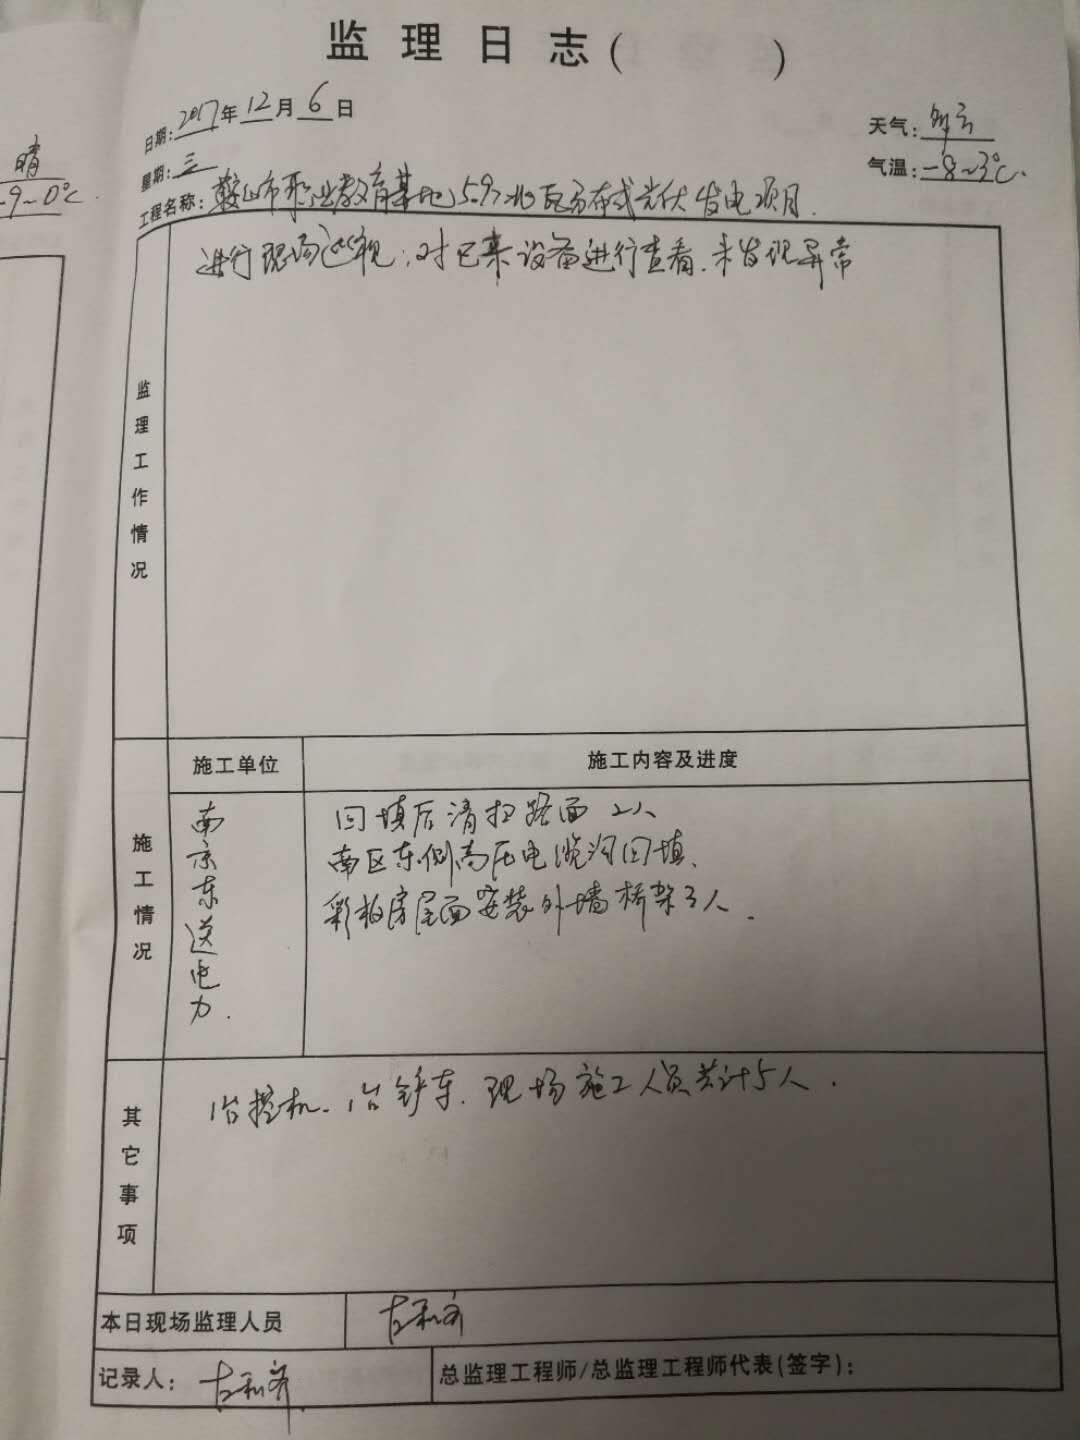 监理日志( )
日期: 2017年12月6日
天气: 多云
晴
星期: 三
气温: -8~3℃.
-9~0℃
工程名称: 鞍山市职业教育基地5.97兆瓦分布式光伏发电项目.
进行现场巡视:对已来设备进行查看.未发现异常
监理工作情况
施工单位
施工内容及进度
施工情况
南京东送电力.
回填后清扫路面 2人
南区东侧高压电缆沟回填.
彩板房屋面安装外墙桥架3人.
其它事项
1台挖机. 1台铲车. 现场施工人员共计5人.
本日现场监理人员
记录人:
总监理工程师/总监理工程师代表(签字):